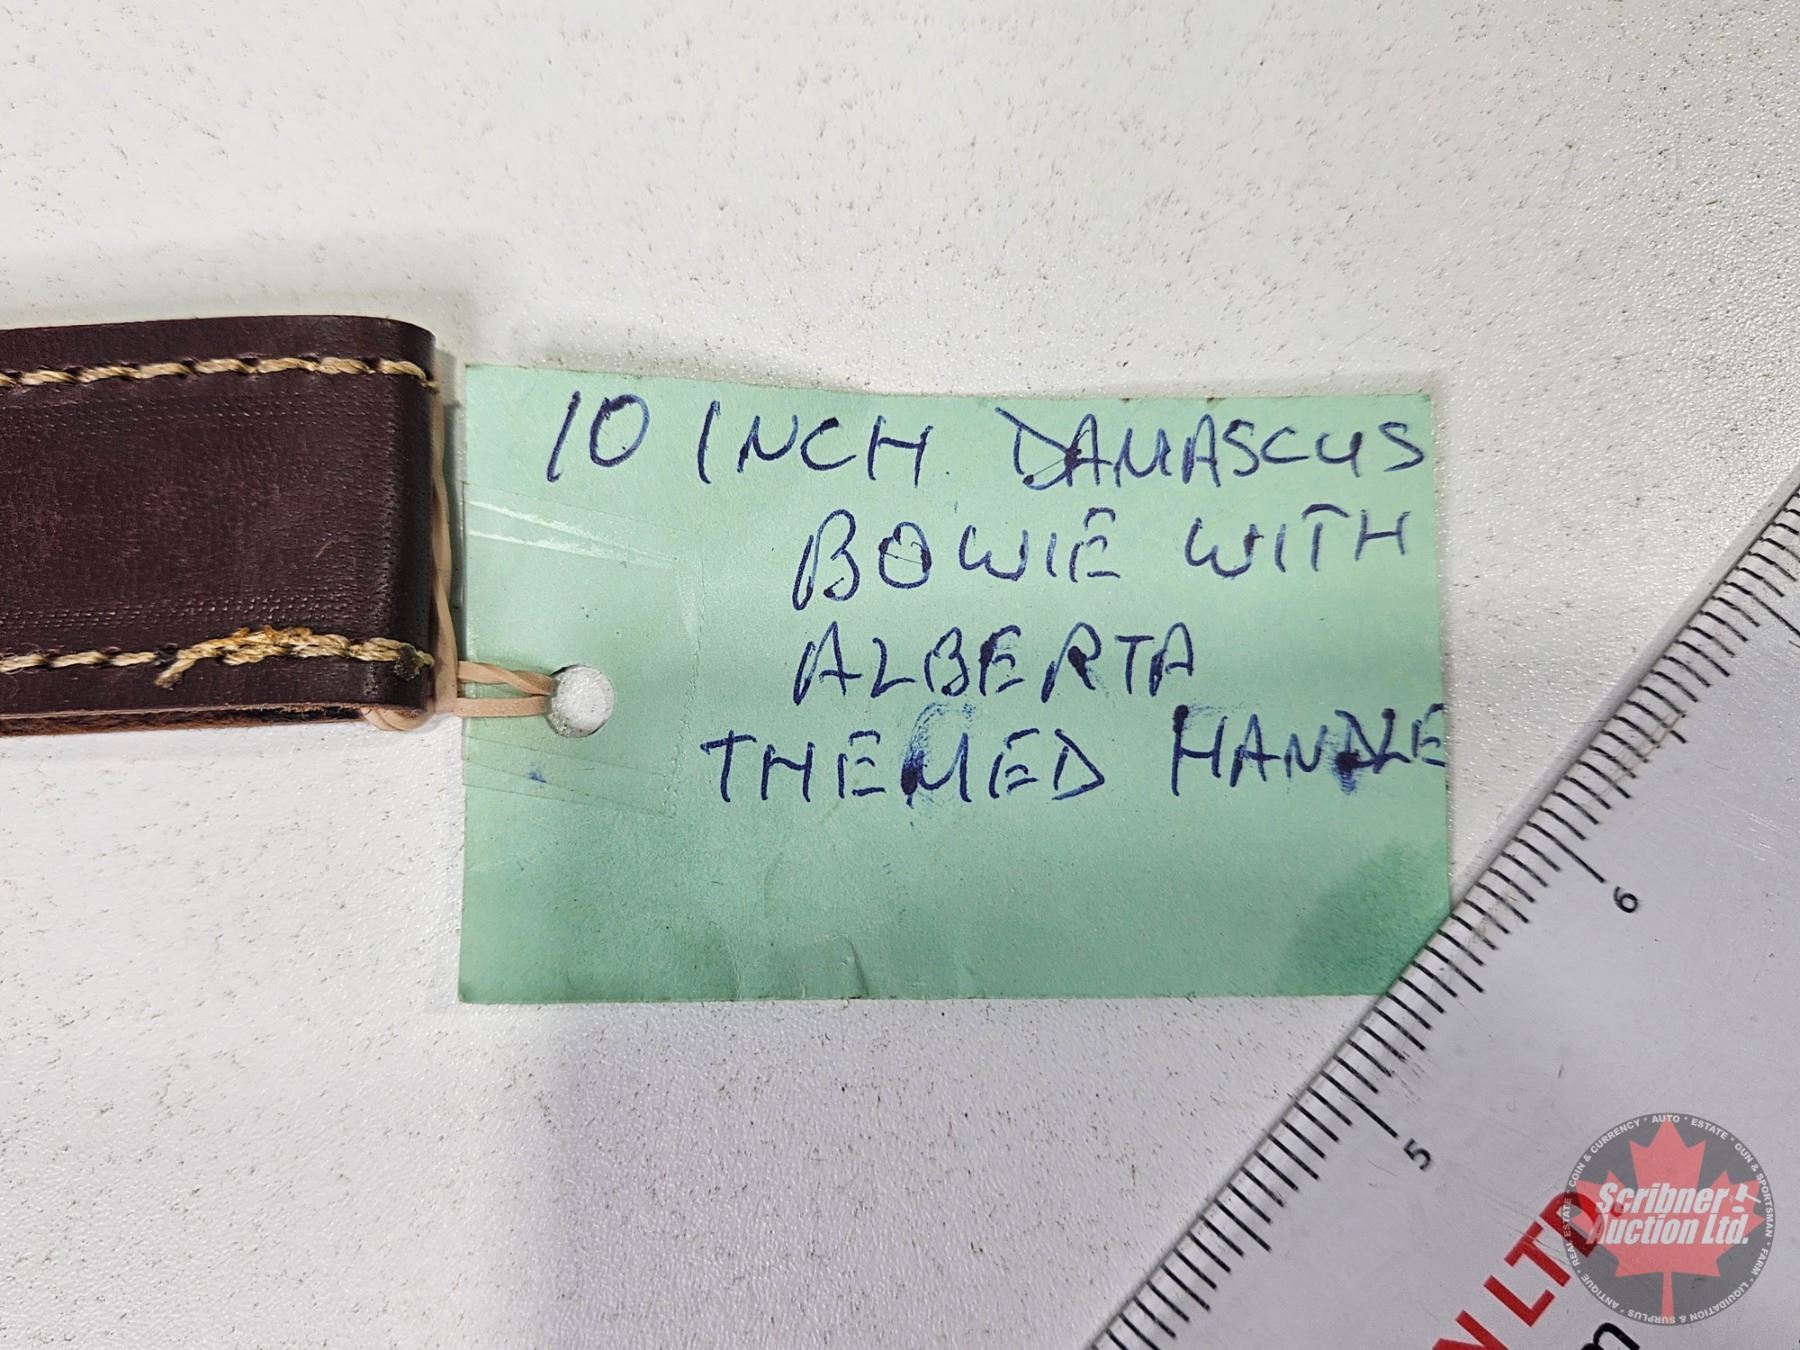 10 INCH DAMASCUS
BOWIE WITH
ALBERTA
THEMED HANDLE
6
5
N LTD
m
COIN & CURRENCY * AUTO * ESTATE * GUN & SPORTSMAN * FARM * LIQUIDATION & SURPLUS * ANTIQUE * REAL ESTATE *
Scribner
Auction Ltd.